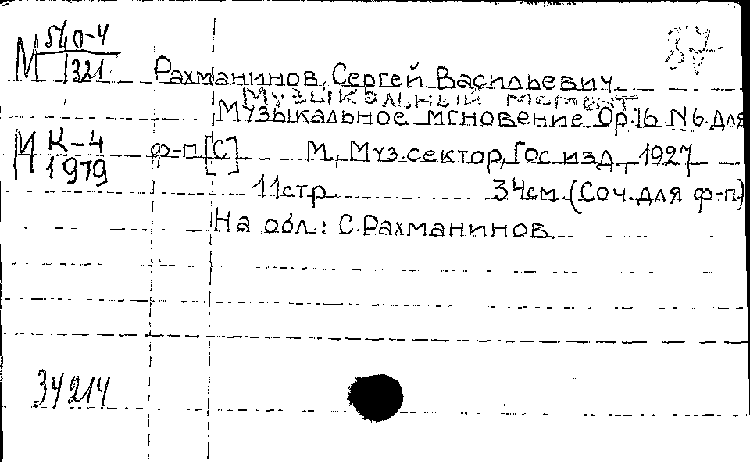 М 540-4
321
87
Рахманинов, Сергей Васильевич
Музыкальный момент
Музыкальное мгновение Op.16 N6. Для
М К-4
1979
ф-п [С] М., Муз.сектор, Гос.изд., 1927
11стр. 34см. (Соч. для ф-п)
На обл.: С.Рахманинов.
34214